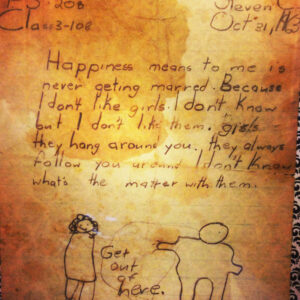 P.S. 208 Steven
Class 3-108 Oct 31,
Happiness means to me is
never geting marred. Because
I dont like girls. I don't know
but I don't like them. girls
they hang around you. they always
follow you around I don't know
what's the matter with them.
Get
out
of
here.